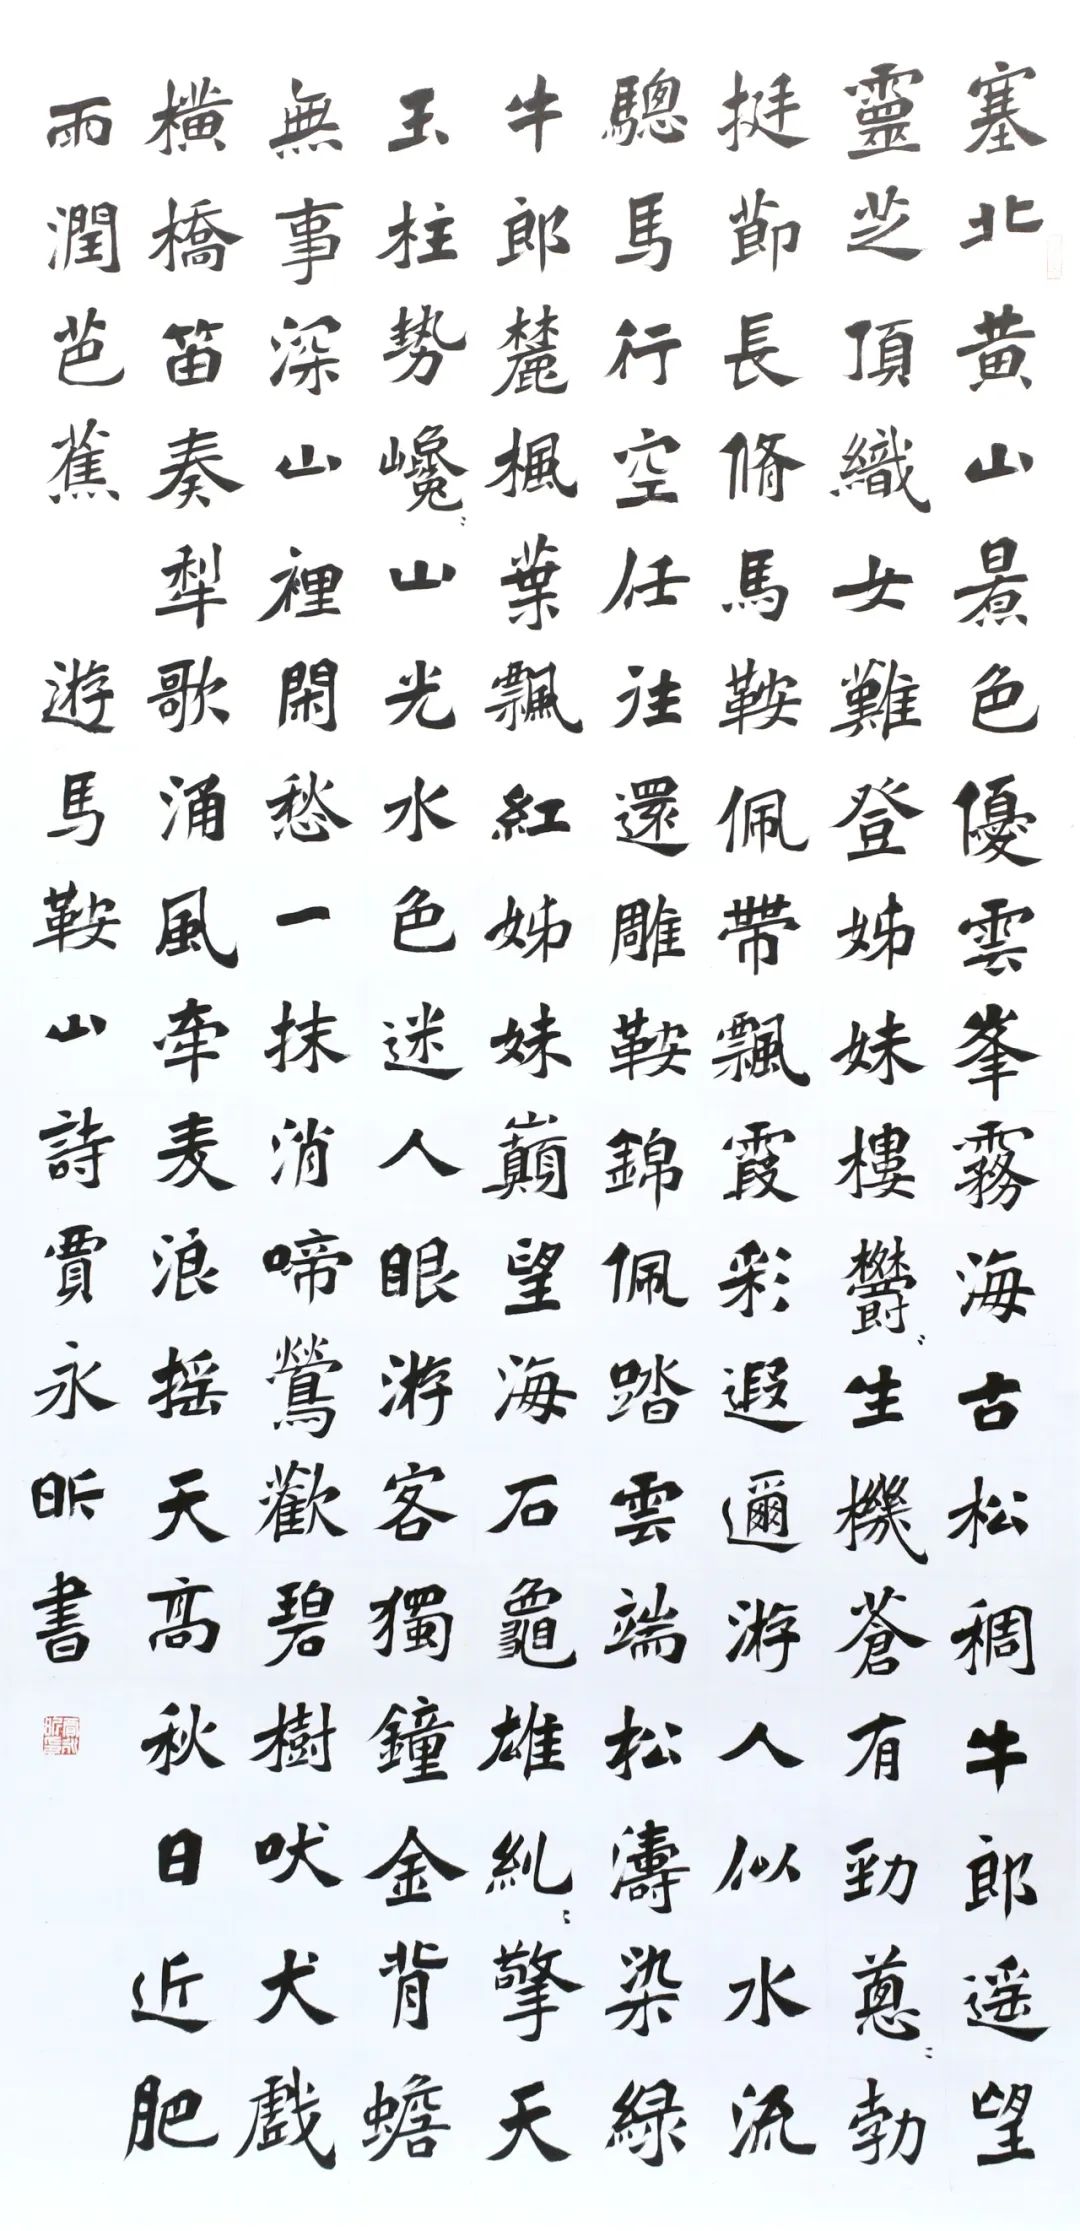 塞北黄山景色優雲峯霧海古松稠牛郎遥望
靈芝頂織女難登姊妹樓欝〻生機蒼有勁蔥〻勃
挺節長脩馬鞍佩帶飄霞彩遐邇游人似水流
驄馬行空任往還雕鞍錦佩踏雲端松濤染緑
牛郎麓楓葉飄紅姊妹巔望海石龜雄糺〻擎天
玉柱勢巉〻山光水色迷人眼游客獨鐘金背蟾
無事深山裡閑愁一抹消啼鶯歡碧樹吠犬戲
横橋笛奏犁歌涌風牽麦浪摇天高秋日近肥
雨潤芭蕉 遊馬鞍山詩賈永昕書